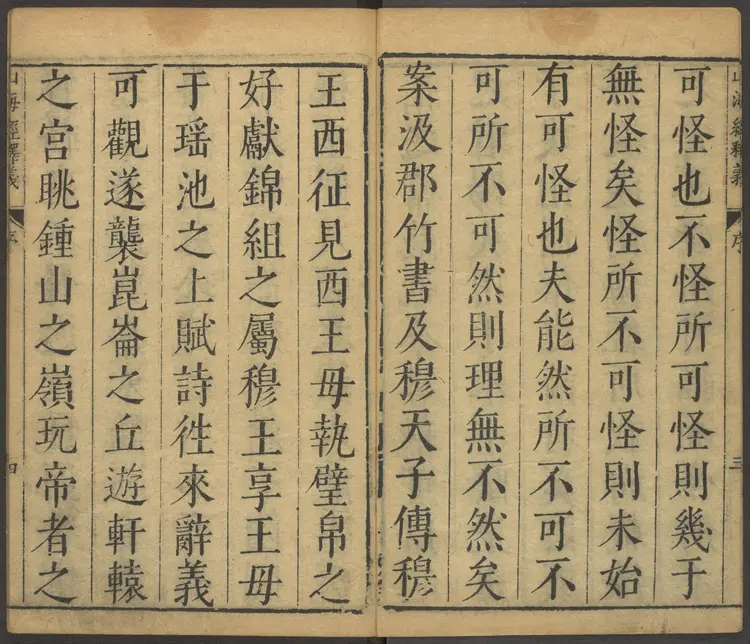 山海經釋義
序
三
可怪也不怪所可怪則幾于
無怪矣怪所不可怪則未始
有可怪也夫能然所不可不
可所不可然則理無不然矣
案汲郡竹書及穆天子傳穆
王西征見西王母執璧帛之
好獻錦組之屬穆王享王母
于瑶池之上賦詩徃來辭義
可觀遂襲崑崙之丘遊軒轅
之宫眺鍾山之嶺玩帝者之
山海經釋義
序
四